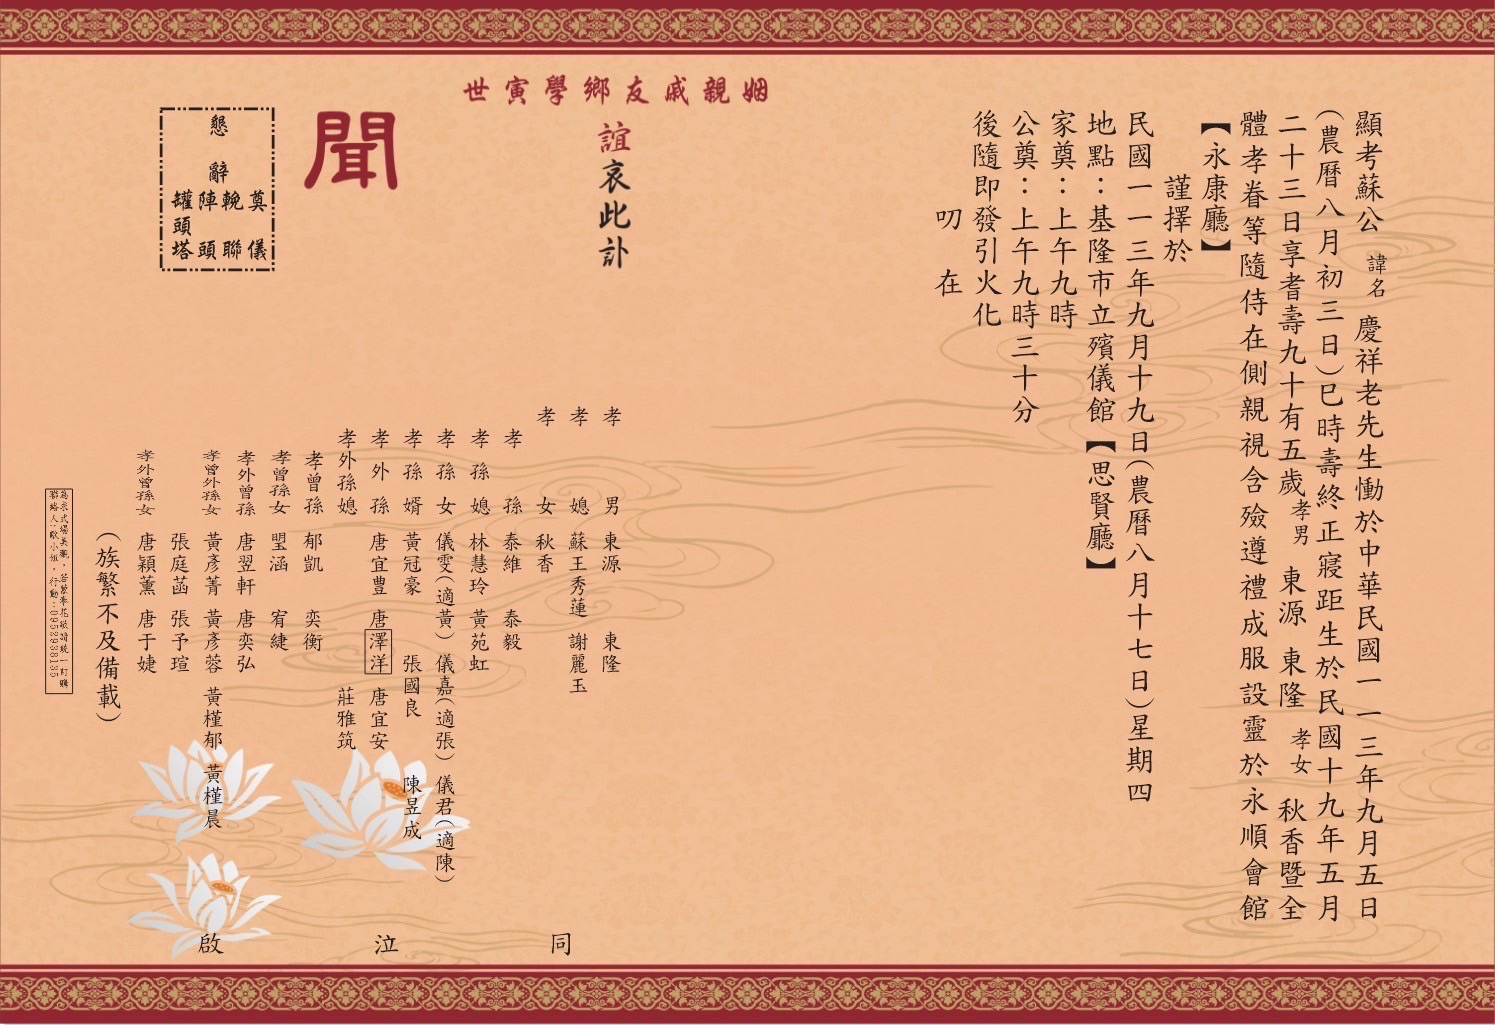 顯考蘇公 諱名 慶祥老先生慟於中華民國一一三年九月五日
(農曆八月初三日)巳時壽終正寢距生於民國十九年五月
二十三日享耆壽九十有五歲 孝男 東源 東隆 孝女 秋香暨全
體孝眷等隨侍在側親視含殮遵禮成服設靈於永順會館
【永康廳】
謹擇於
民國一一三年九月十九日(農曆八月十七日)星期四
地點：基隆市立殯儀館【思賢廳】
家奠：上午九時
公奠：上午九時三十分
後隨即發引火化
叨在
姻親戚友鄉學寅世
誼哀此訃
聞
懇辭
奠儀
輓聯
陣頭
罐頭塔
孝男 東源 東隆
孝媳 蘇王秀蓮 謝麗玉
孝女 秋香
孝孫 泰維 泰毅
孝孫媳 林慧玲 黃苑虹
孝孫女 儀雯(適黃) 儀嘉(適張) 儀君(適陳)
孝孫婿 黃冠豪 張國良 陳昱成
孝外孫 唐宜豊 唐澤洋 唐宜安
孝外孫媳 莊雅筑
孝曾孫 郁凱 奕衡
孝曾孫女 曌涵 宥緁
孝外曾孫 唐翌軒 唐奕弘
孝曾外孫女 黃彥菁 黃彥蓉 黃槿郁 黃槿晨
張庭菡 張予瑄
孝外曾孫女 唐穎薰 唐于婕
(族繁不及備載)
同泣啟
為求式場美觀，若蒙奉花敬請統一訂購
聯絡人：歐小姐，行動：0952938135